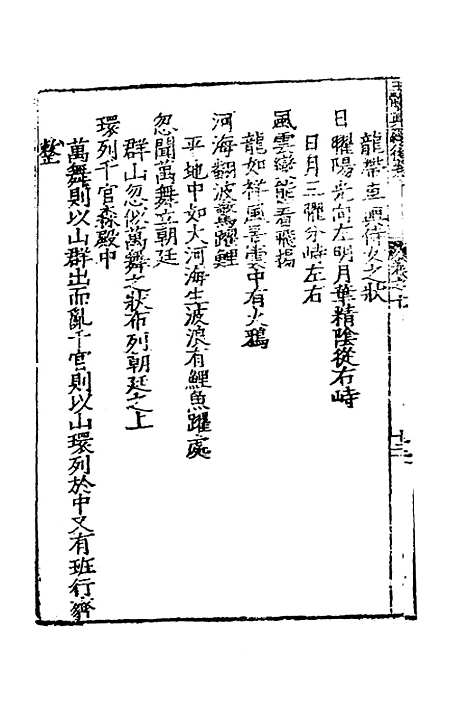 龍帶車興侍女之狀
日曜陽光向左明月華精陰從右峙
日月三曜分峙左右
風雲變態看飛揚
龍如祥風善雲中有火鴉
河海翻波驚躍鯉
平地中如大河海生波浪有鯉魚躍處
忽聞萬舞立朝廷
群山忽似萬舞之狀布列朝廷之上
環列千官森殿中
萬舞則以山群出而亂千官則以山環列於中又有班行齊
整